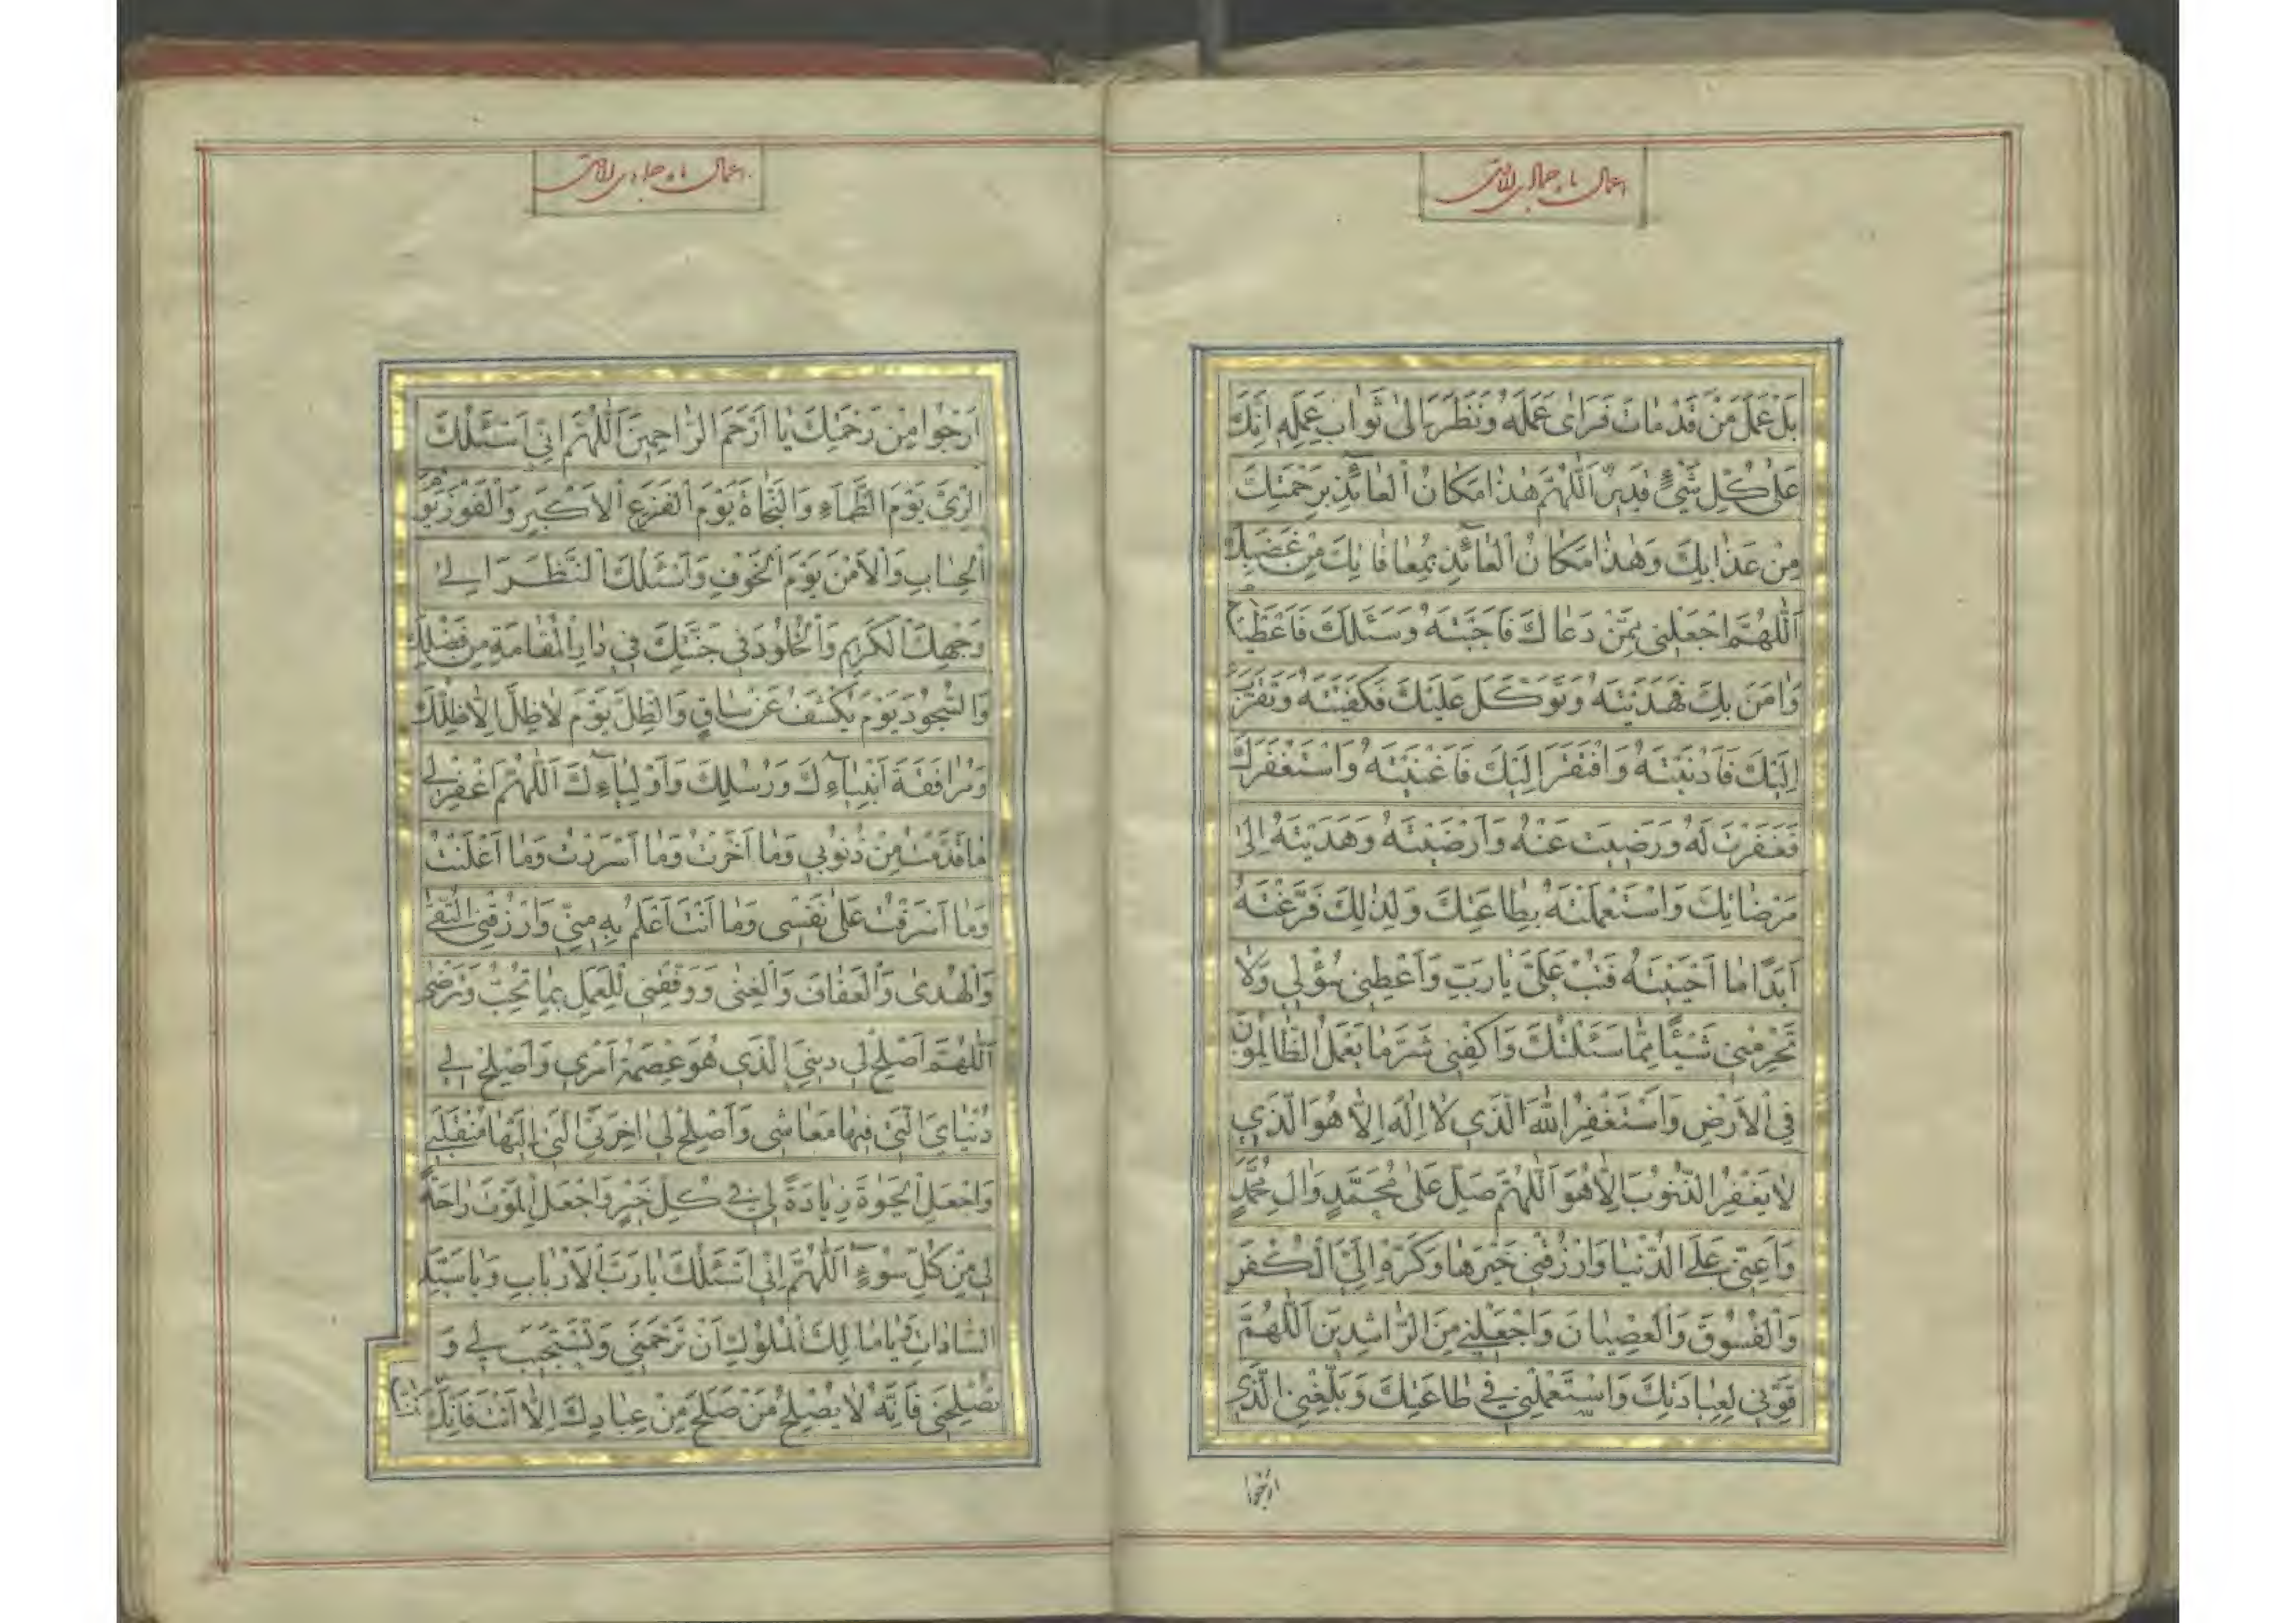 اعمال ماه جمادی الاخر
بَلْ عَمَلَ مَنْ قَدْ مٰاتَ فَرَاىٰ عَمَلَهُ وَنَظَرَ اِلىٰ ثَوٰابِ عَمَلِهِ اِنَّكَ
عَلىٰ كُلِّ شَيْءٍ قَدِيرٌ اَللّٰهُمَّ هٰذٰا مَكٰانُ الْعٰائِذِ بِرَحْمَتِكَ
مِنْ عَذٰابِكَ وَهٰذٰا مَكٰانُ الْعٰائِذِ بِمُعٰافٰاتِكَ مِنْ غَضَبِكَ
اَللّٰهُمَّ اجْعَلْنِي مِمَّنْ دَعٰاكَ فَاَجَبْتَهُ وَسَئَلَكَ فَاَعْطَيْتَهُ
وَاٰمَنَ بِكَ فَهَدَيْتَهُ وَتَوَكَّلَ عَلَيْكَ فَكَفَيْتَهُ وَتَقَرَّبَ
اِلَيْكَ فَاَدْنَيْتَهُ وَافْتَقَرَ اِلَيْكَ فَاَغْنَيْتَهُ وَاسْتَغْفَرَكَ
فَغَفَرْتَ لَهُ وَرَضِيتَ عَنْهُ وَاَرْضَيْتَهُ وَهَدَيْتَهُ اِلىٰ
مَرْضٰاتِكَ وَاسْتَعْمَلْتَهُ بِطٰاعَتِكَ وَلِذٰلِكَ فَرَّغْتَهُ
اَبَدًا مٰا اَحْيَيْتَهُ فَتُبْ عَلَيَّ يٰا رَبِّ وَاَعْطِنِي سُؤْلِي وَلاٰ
تَحْرِمْنِي شَيْئًا مِمّٰا سَئَلْتُكَ وَاكْفِنِي شَرَّ مٰا يَعْمَلُ الظّٰالِمُونَ
فِي الْاَرْضِ وَاَسْتَغْفِرُ اللّٰهَ الَّذِي لاٰ اِلٰهَ اِلاّٰ هُوَ الَّذِي
لاٰ يَغْفِرُ الذُّنُوبَ اِلاّٰ هُوَ اَللّٰهُمَّ صَلِّ عَلىٰ مُحَمَّدٍ وَاٰلِ مُحَمَّدٍ
وَاَعِنِّي عَلَى الدُّنْيٰا وَارْزُقْنِي خَيْرَهٰا وَكَرِّهْ اِلَيَّ الْكُفْرَ
وَالْفُسُوقَ وَالْعِصْيٰانَ وَاجْعَلْنِي مِنَ الرّٰاشِدِينَ اَللّٰهُمَّ
قَوِّنِي لِعِبٰادَتِكَ وَاسْتَعْمِلْنِي فِي طٰاعَتِكَ وَبَلِّغْنِي الَّذِي
ارجوا
اعمال ماه جمادی الاخر
اَرْجُوا مِنْ رَحْمَتِكَ يٰا اَرْحَمَ الرّٰاحِمِينَ اَللّٰهُمَّ اِنِّي اَسْئَلُكَ
الرِّيَّ يَوْمَ الظَّمَاءِ وَالنَّجٰاةَ يَوْمَ الْفَزَعِ الْاَكْبَرِ وَالْفَوْزَ يَوْمَ
الْحِسٰابِ وَالْاَمْنَ يَوْمَ الْخَوْفِ وَاَسْئَلُكَ النَّظَرَ اِلىٰ
وَجْهِكَ الْكَرِيمِ وَالْخُلُودَ فِي جَنَّتِكَ فِي دٰارِ الْمُقٰامَةِ مِنْ فَضْلِكَ
وَالسُّجُودَ يَوْمَ يُكْشَفُ عَنْ سٰاقٍ وَالظِّلَّ يَوْمَ لاٰ ظِلَّ اِلاّٰ ظِلُّكَ
وَمُرٰافَقَةَ اَنْبِيٰاءِكَ وَرُسُلِكَ وَاَوْلِيٰاءِكَ اَللّٰهُمَّ اغْفِرْ لِي
مٰا قَدَّمْتُ مِنْ ذُنُوبِي وَمٰا اَخَّرْتُ وَمٰا اَسْرَرْتُ وَمٰا اَعْلَنْتُ
وَمٰا اَسْرَفْتُ عَلىٰ نَفْسِي وَمٰا اَنْتَ اَعْلَمُ بِهِ مِنِّي وَارْزُقْنِي التُّقىٰ
وَالْهُدىٰ وَالْعَفٰافَ وَالْغِنىٰ وَوَفِّقْنِي لِلْعَمَلِ بِمٰا تُحِبُّ وَتَرْضىٰ
اَللّٰهُمَّ اَصْلِحْ لِي دِينِيَ الَّذِي هُوَ عِصْمَةُ اَمْرِي وَاَصْلِحْ لِي
دُنْيٰايَ الَّتِي فِيهٰا مَعٰاشِي وَاَصْلِحْ لِي اٰخِرَتِيَ الَّتِي اِلَيْهٰا مُنْقَلَبِي
وَاجْعَلِ الْحَيٰوةَ زِيٰادَةً لِي فِي كُلِّ خَيْرٍ وَاجْعَلِ الْمَوْتَ رٰاحَةً
لِي مِنْ كُلِّ سُوءٍ اَللّٰهُمَّ اِنِّي اَسْئَلُكَ يٰا رَبَّ الْاَرْبٰابِ وَيٰا سَيِّدَ
السّٰادٰاتِ وَيٰا مٰالِكَ الْمُلُوكِ اَنْ تَرْحَمَنِي وَتَسْتَجِيبَ لِي وَ
تُصْلِحَنِي فَاِنَّهُ لاٰ يُصْلِحُ مَنْ صَلَحَ مِنْ عِبٰادِكَ اِلاّٰ اَنْتَ فَاِنَّكَ